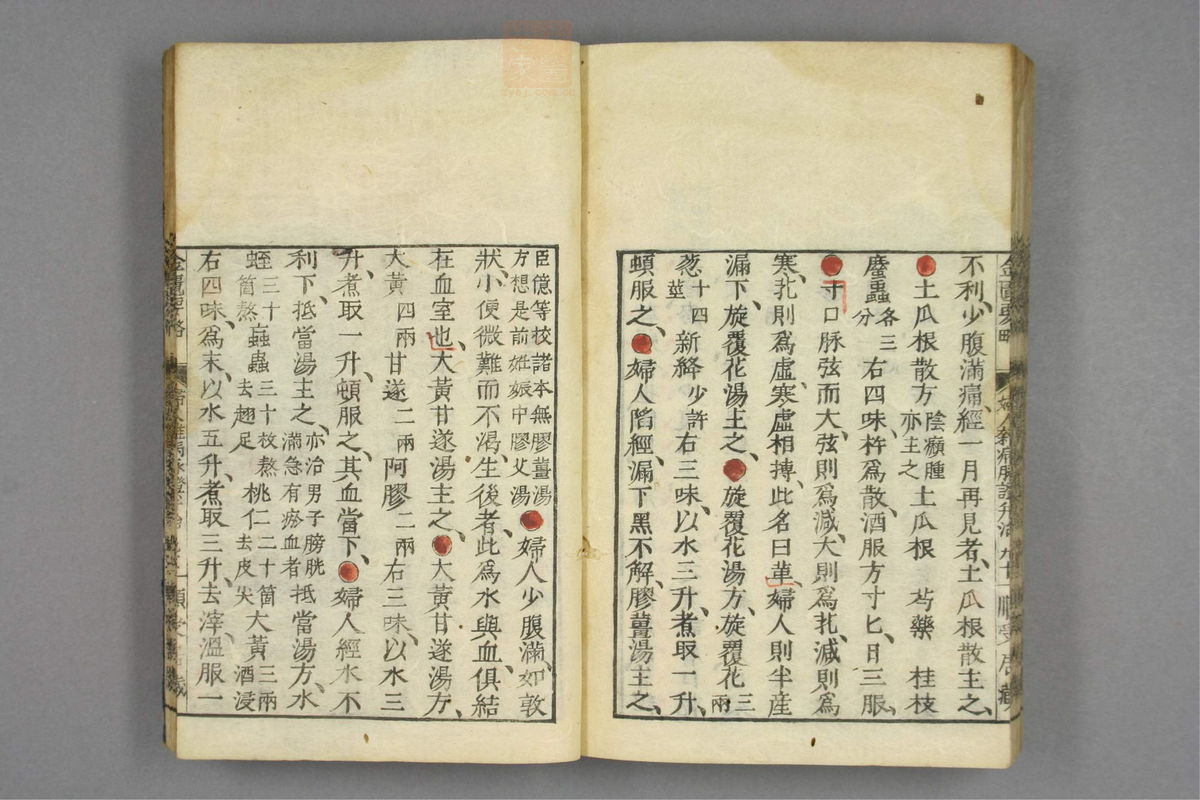 不利少腹滿痛經一月再見者土瓜根散主之
土瓜根散方 陰癩腫亦主之 土瓜根 芍藥 桂枝
䗪蟲 各三分 右四味杵爲散酒服方寸匕日三服
寸口脉弦而大弦則爲減大則爲芤減則爲
寒芤則爲虛寒虛相搏此名曰革婦人則半産
漏下旋覆花湯主之 旋覆花湯方 旋覆花 三兩
葱 十四莖 新絳 少許 右三味以水三升煮取一升
頓服之 婦人陷經漏下黑不解膠薑湯主之
臣億等校諸本無膠薑湯方想是前姙娠中膠艾湯 婦人少腹滿如敦
狀小便微難而不渴生後者此爲水與血俱結
在血室也大黃甘遂湯主之 大黃甘遂湯方
大黃 四兩 甘遂 二兩 阿膠 二兩 右三味以水三
升煮取一升頓服之其血當下 婦人經水不
利下抵當湯主之 亦治男子膀胱滿急有瘀血者 抵當湯方 水
蛭 三十箇熬 䖟蟲 三十枚熬去翅足 桃仁 二十箇去皮尖 大黃 三兩酒浸
右四味爲末以水五升煮取三升去滓溫服一